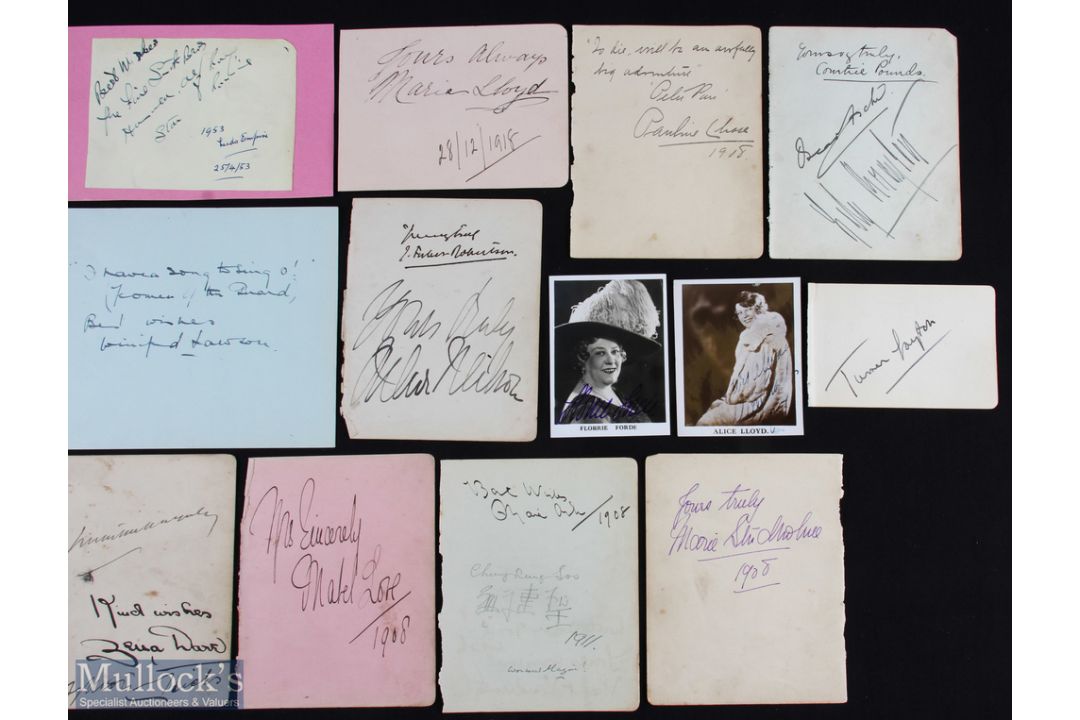 Best Wishes
The Five Smith Bros
1953
Leeds Empire
25/4/53
Yours Always
Marie Lloyd
28/12/1918
"To die, will be an awfully
big adventure"
"Peter Pan"
Pauline Chase
1908
Yours truly,
Courtice Pounds.
Oscar Asche
Lily Brayton
"I have a song to sing o'!"
(Yeomen of the Guard)
Best wishes
Winifred Lawson.
J. Forbes Robertson.
Yours
FLORRIE FORDE
ALICE LLOYD.
Turner Layton
Kind wishes
Zena Dare
Yrs Sincerely
Mabel Love
1908
Best Wishes
1908
Chung Ling Soo
1911.
Yours truly
Marie Studholme
1908
Mullock's
Specialist Auctioneers & Valuers